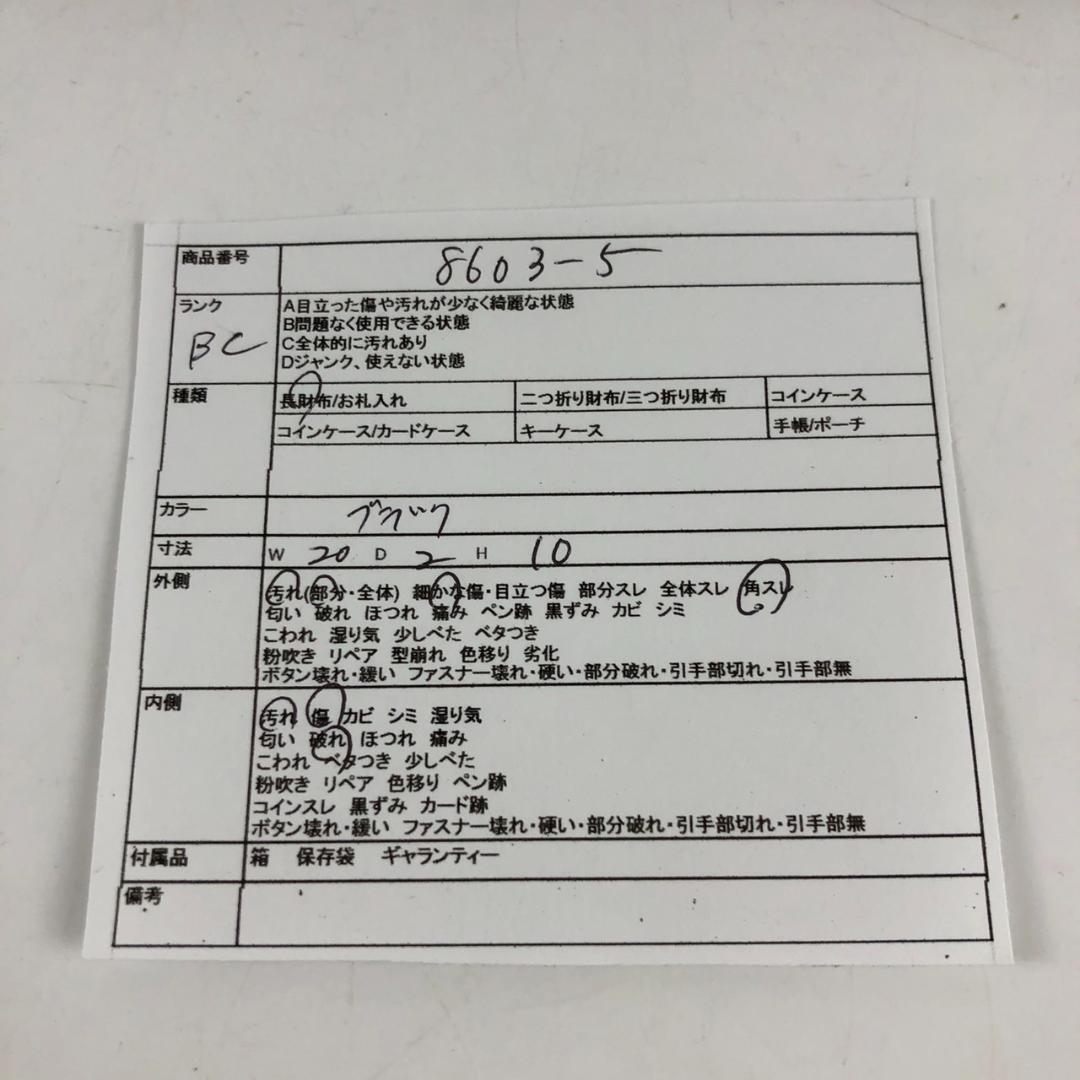 商品番号 8603-5
ランク A目立った傷や汚れが少なく綺麗な状態
B問題なく使用できる状態
BC C全体的に汚れあり
Dジャンク、使えない状態
種類 長財布/お札入れ 二つ折り財布/三つ折り財布 コインケース
コインケース/カードケース キーケース 手帳/ポーチ
カラー ブラック
寸法 W 20 D 2 H 10
外側 汚れ(部分・全体) 細かな傷・目立つ傷 部分スレ 全体スレ 角スレ
匂い 破れ ほつれ 痛み ペン跡 黒ずみ カビ シミ
こわれ 湿り気 少しべた ベタつき
粉吹き リペア 型崩れ 色移り 劣化
ボタン壊れ・緩い ファスナー壊れ・硬い・部分破れ・引手部切れ・引手部無
内側 汚れ 傷 カビ シミ 湿り気
匂い 破れ ほつれ 痛み
こわれ ベタつき 少しべた
粉吹き リペア 色移り ペン跡
コインスレ 黒ずみ カード跡
ボタン壊れ・緩い ファスナー壊れ・硬い・部分破れ・引手部切れ・引手部無
付属品 箱 保存袋 ギャランティー
備考